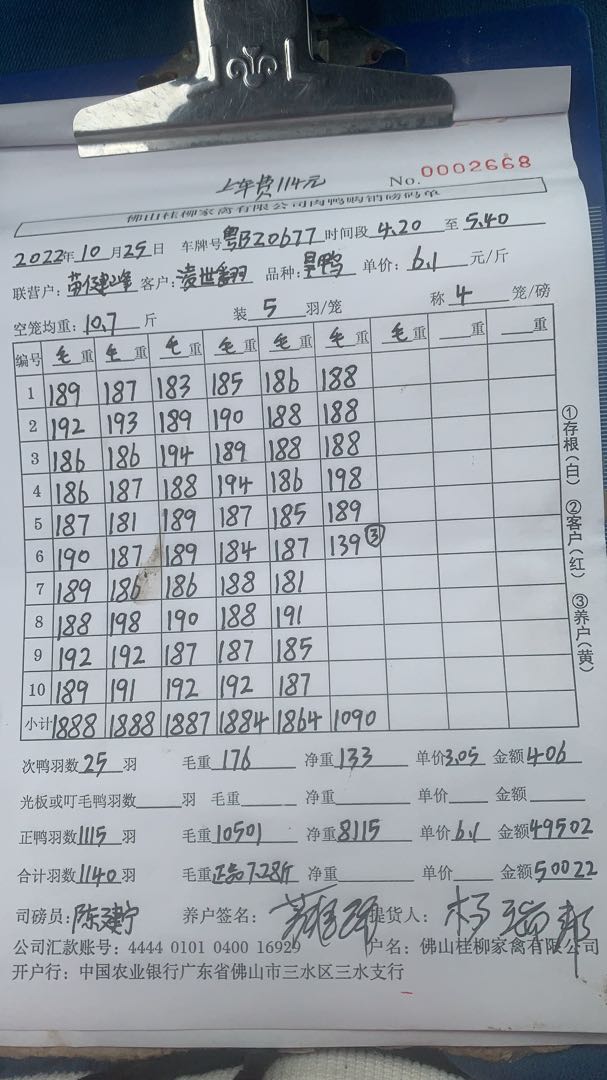 上车费114元 No. 0002668
佛山桂柳家禽有限公司肉鸭购销磅码单
2022年10月25日 车牌号粤BZ0677时间段4.20至5.40
联营户: 客户: 品种: 鸭 单价: 6.1 元/斤
空笼均重: 10.7斤 装5羽/笼 称4笼/磅
编号 毛重 毛重 毛重 毛重 毛重 毛重 毛重 重 重
1 189 187 183 185 186 188
2 192 193 189 190 188 188
3 186 186 194 189 188 188
4 186 187 188 194 186 198
5 187 181 189 187 185 189
6 190 187 189 184 187 139③
7 189 186 186 188 181
8 188 198 190 188 191
9 192 192 187 187 185
10 189 191 192 192 187
小计 1888 1888 1887 1884 1864 1090
次鸭羽数25羽 毛重176 净重133 单价3.05 金额406
光板或叮毛鸭羽数 羽 毛重 净重 单价 金额
正鸭羽数1115羽 毛重10501 净重8115 单价6.1 金额49502
合计羽数1140羽 毛重正品7.28斤 净重 单价 金额50022
司磅员: 陈建宁 养户签名: 提货人:
公司汇款账号: 4444 0101 0400 16929 户名: 佛山桂柳家禽有限公司
开户行: 中国农业银行广东省佛山市三水区三水支行
①存根(白) ②客户(红) ③养户(黄)